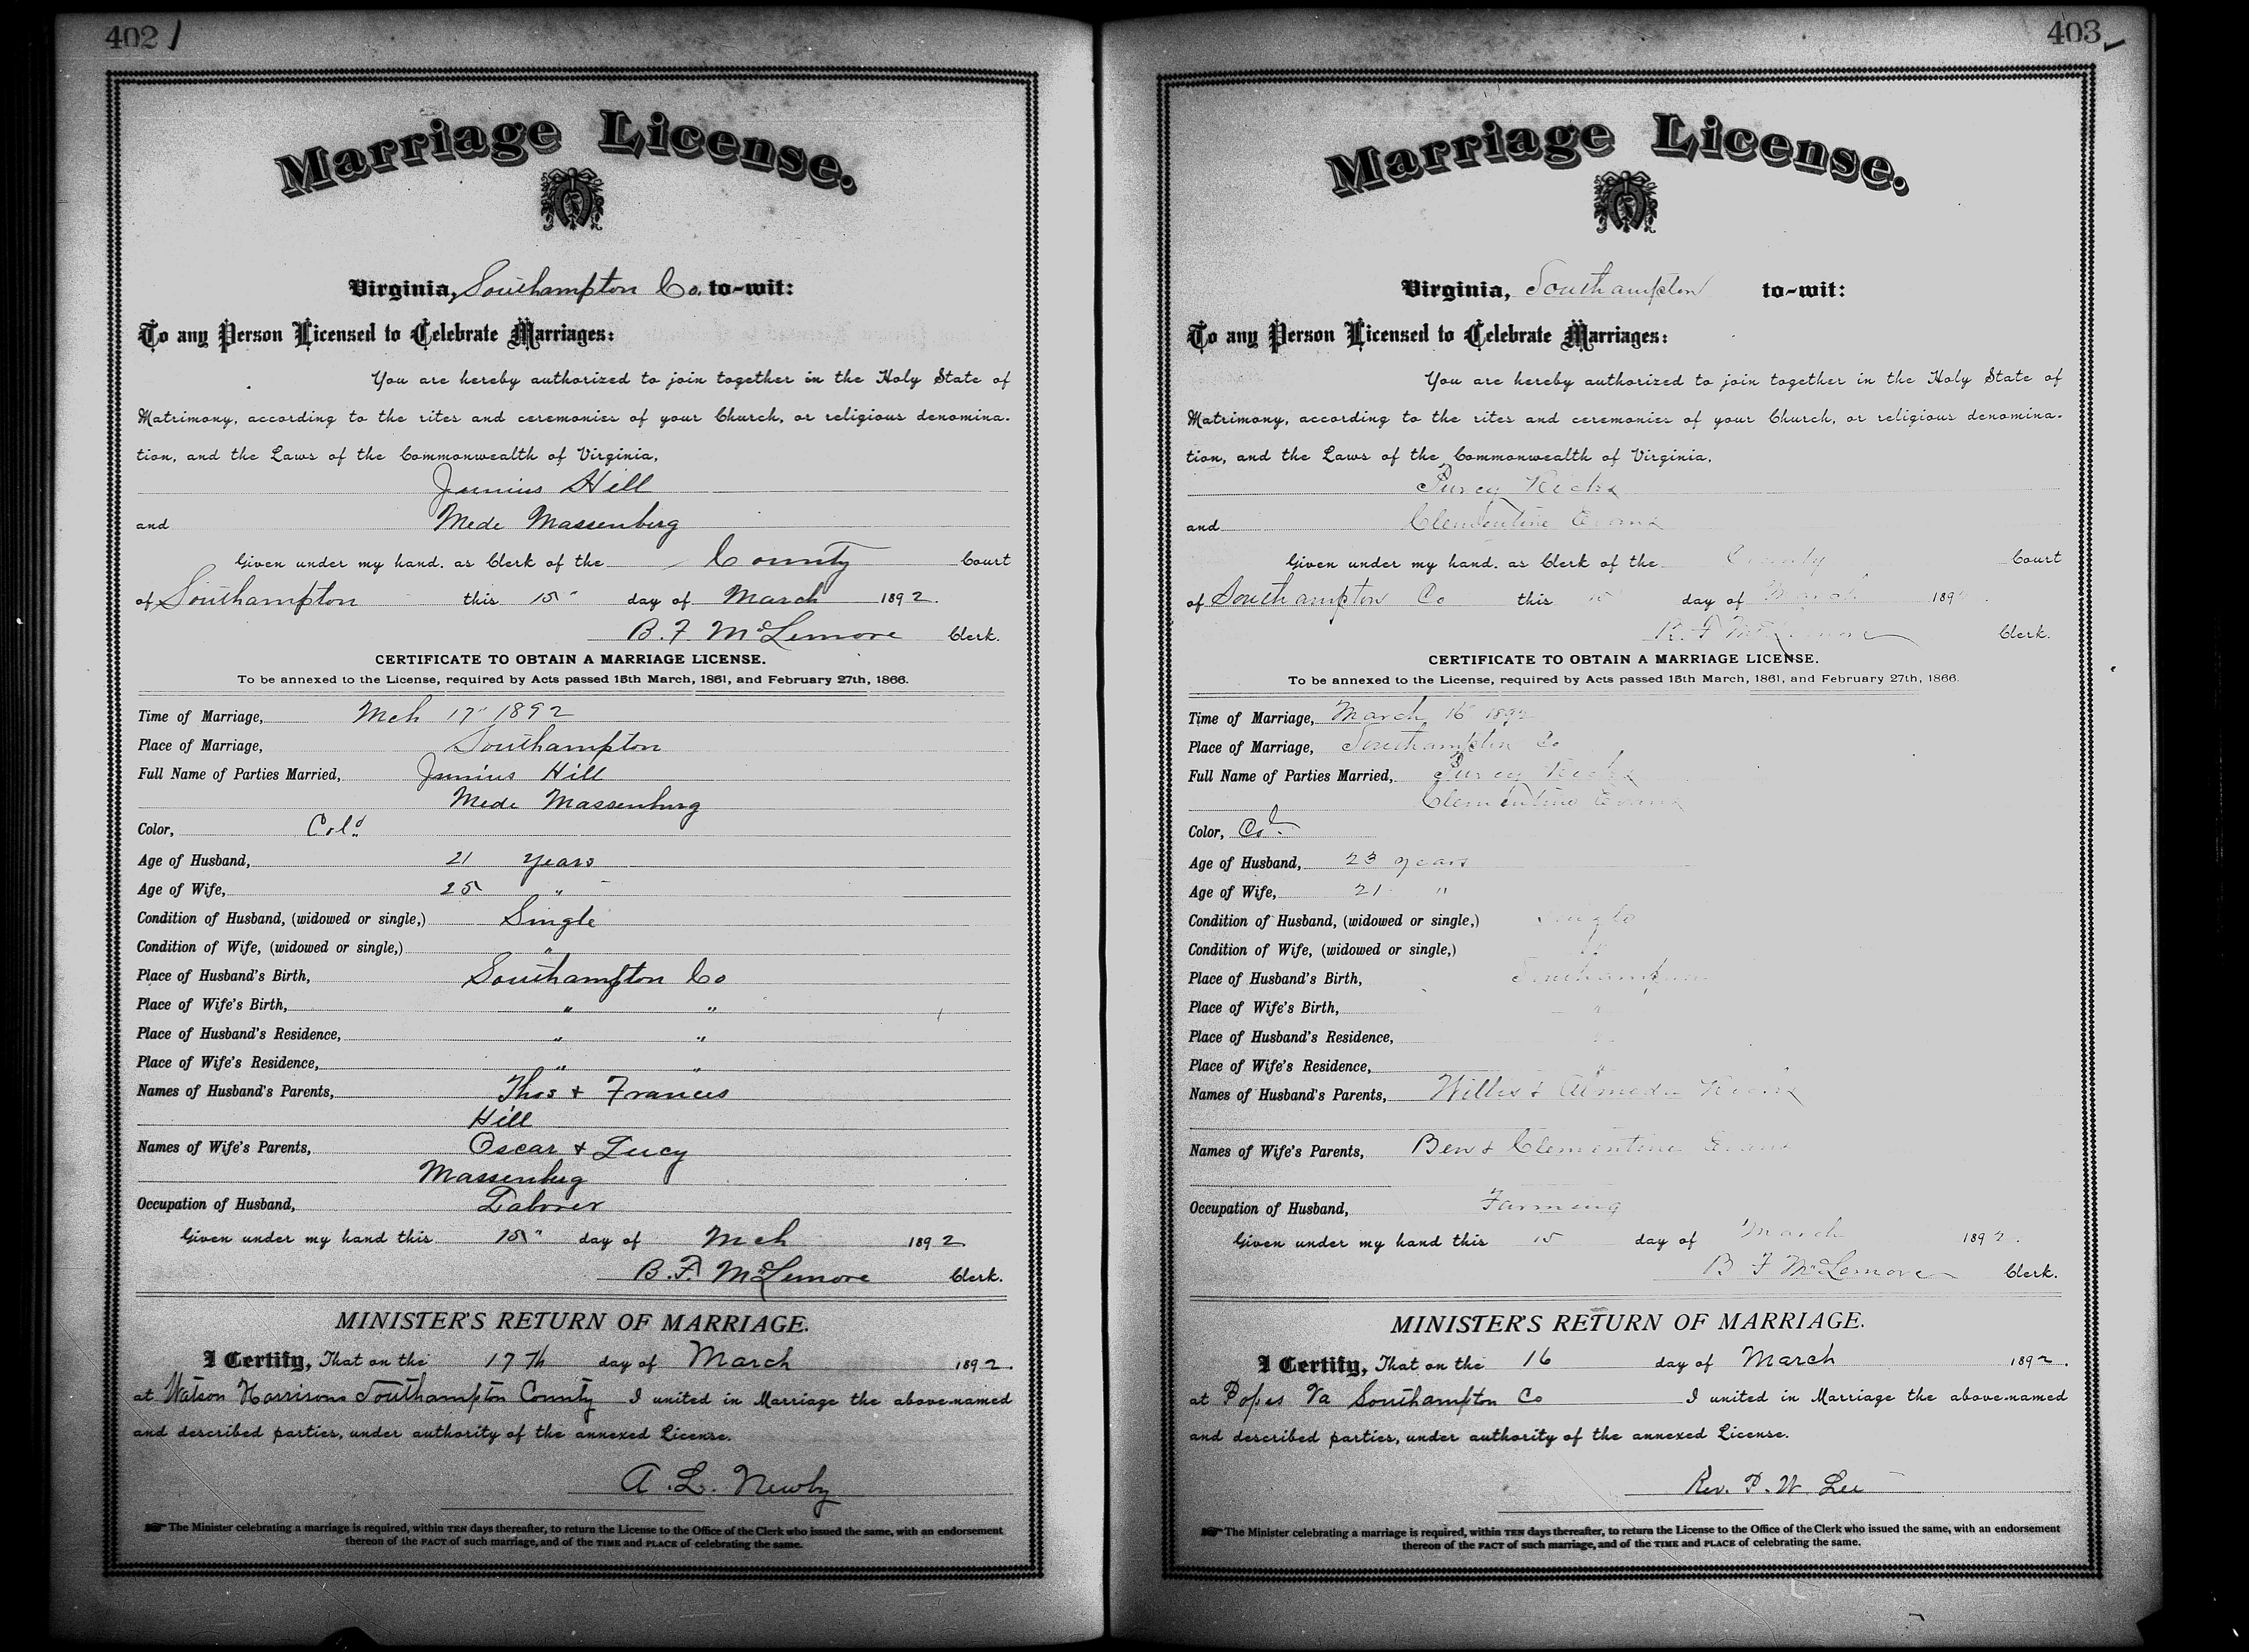 402
Marriage License.
Virginia, Southampton Co. to-wit:
To any Person Licensed to Celebrate Marriages:
You are hereby authorized to join together in the Holy State of
Matrimony, according to the rites and ceremonies of your Church, or religious denomina-
tion, and the Laws of the Commonwealth of Virginia,
Junius Hill
and Mede Massenberg
Given under my hand, as Clerk of the County Court
of Southampton this 15" day of March 1892.
B. F. McLemore Clerk.
CERTIFICATE TO OBTAIN A MARRIAGE LICENSE.
To be annexed to the License, required by Acts passed 15th March, 1861, and February 27th, 1866.
Time of Marriage, Mch 17" 1892
Place of Marriage, Southampton
Full Name of Parties Married, Junius Hill
Mede Massenburg
Color, Cold
Age of Husband, 21 years
Age of Wife, 25 "
Condition of Husband, (widowed or single,) Single
Condition of Wife, (widowed or single,) "
Place of Husband's Birth, Southampton Co
Place of Wife's Birth, " "
Place of Husband's Residence, " "
Place of Wife's Residence, " "
Names of Husband's Parents, Thos + Frances
Hill
Names of Wife's Parents, Oscar + Lucy
Massenbug
Occupation of Husband, Laborer
Given under my hand this 15" day of Mch 1892
B. F. McLemore Clerk.
MINISTER'S RETURN OF MARRIAGE.
I Certify, That on the 17th day of March 1892.
at Watson Harrisons Southampton County I united in Marriage the above-named
and described parties, under authority of the annexed License.
A. L. Newby
The Minister celebrating a marriage is required, within TEN days thereafter, to return the License to the Office of the Clerk who issued the same, with an endorsement
thereon of the FACT of such marriage, and of the TIME and PLACE of celebrating the same.
403
Marriage License.
Virginia, Southampton to-wit:
To any Person Licensed to Celebrate Marriages:
You are hereby authorized to join together in the Holy State of
Matrimony, according to the rites and ceremonies of your Church, or religious denomina-
tion, and the Laws of the Commonwealth of Virginia,
Ricks
and Clementine Evans
Given under my hand, as Clerk of the County Court
of Southampton Co this 15 day of March 189
B. F. McLemore Clerk.
CERTIFICATE TO OBTAIN A MARRIAGE LICENSE.
To be annexed to the License, required by Acts passed 15th March, 1861, and February 27th, 1866.
Time of Marriage, March 16 1892
Place of Marriage, Southampton Co
Full Name of Parties Married, Ricks
Clementine Evans
Color, Col
Age of Husband, 23 years
Age of Wife, 21 "
Condition of Husband, (widowed or single,) Single
Condition of Wife, (widowed or single,) "
Place of Husband's Birth, Southampton
Place of Wife's Birth, "
Place of Husband's Residence, "
Place of Wife's Residence, "
Names of Husband's Parents, Willis + Almeda Ricks
Names of Wife's Parents, Ben + Clementine Evans
Occupation of Husband, Farming
Given under my hand this 15 day of March 1892.
B F McLemore Clerk.
MINISTER'S RETURN OF MARRIAGE.
I Certify, That on the 16 day of March 1892.
at Popes Va Southampton Co I united in Marriage the above-named
and described parties, under authority of the annexed License.
Rev. P. W. Lee
The Minister celebrating a marriage is required, within TEN days thereafter, to return the License to the Office of the Clerk who issued the same, with an endorsement
thereon of the FACT of such marriage, and of the TIME and PLACE of celebrating the same.